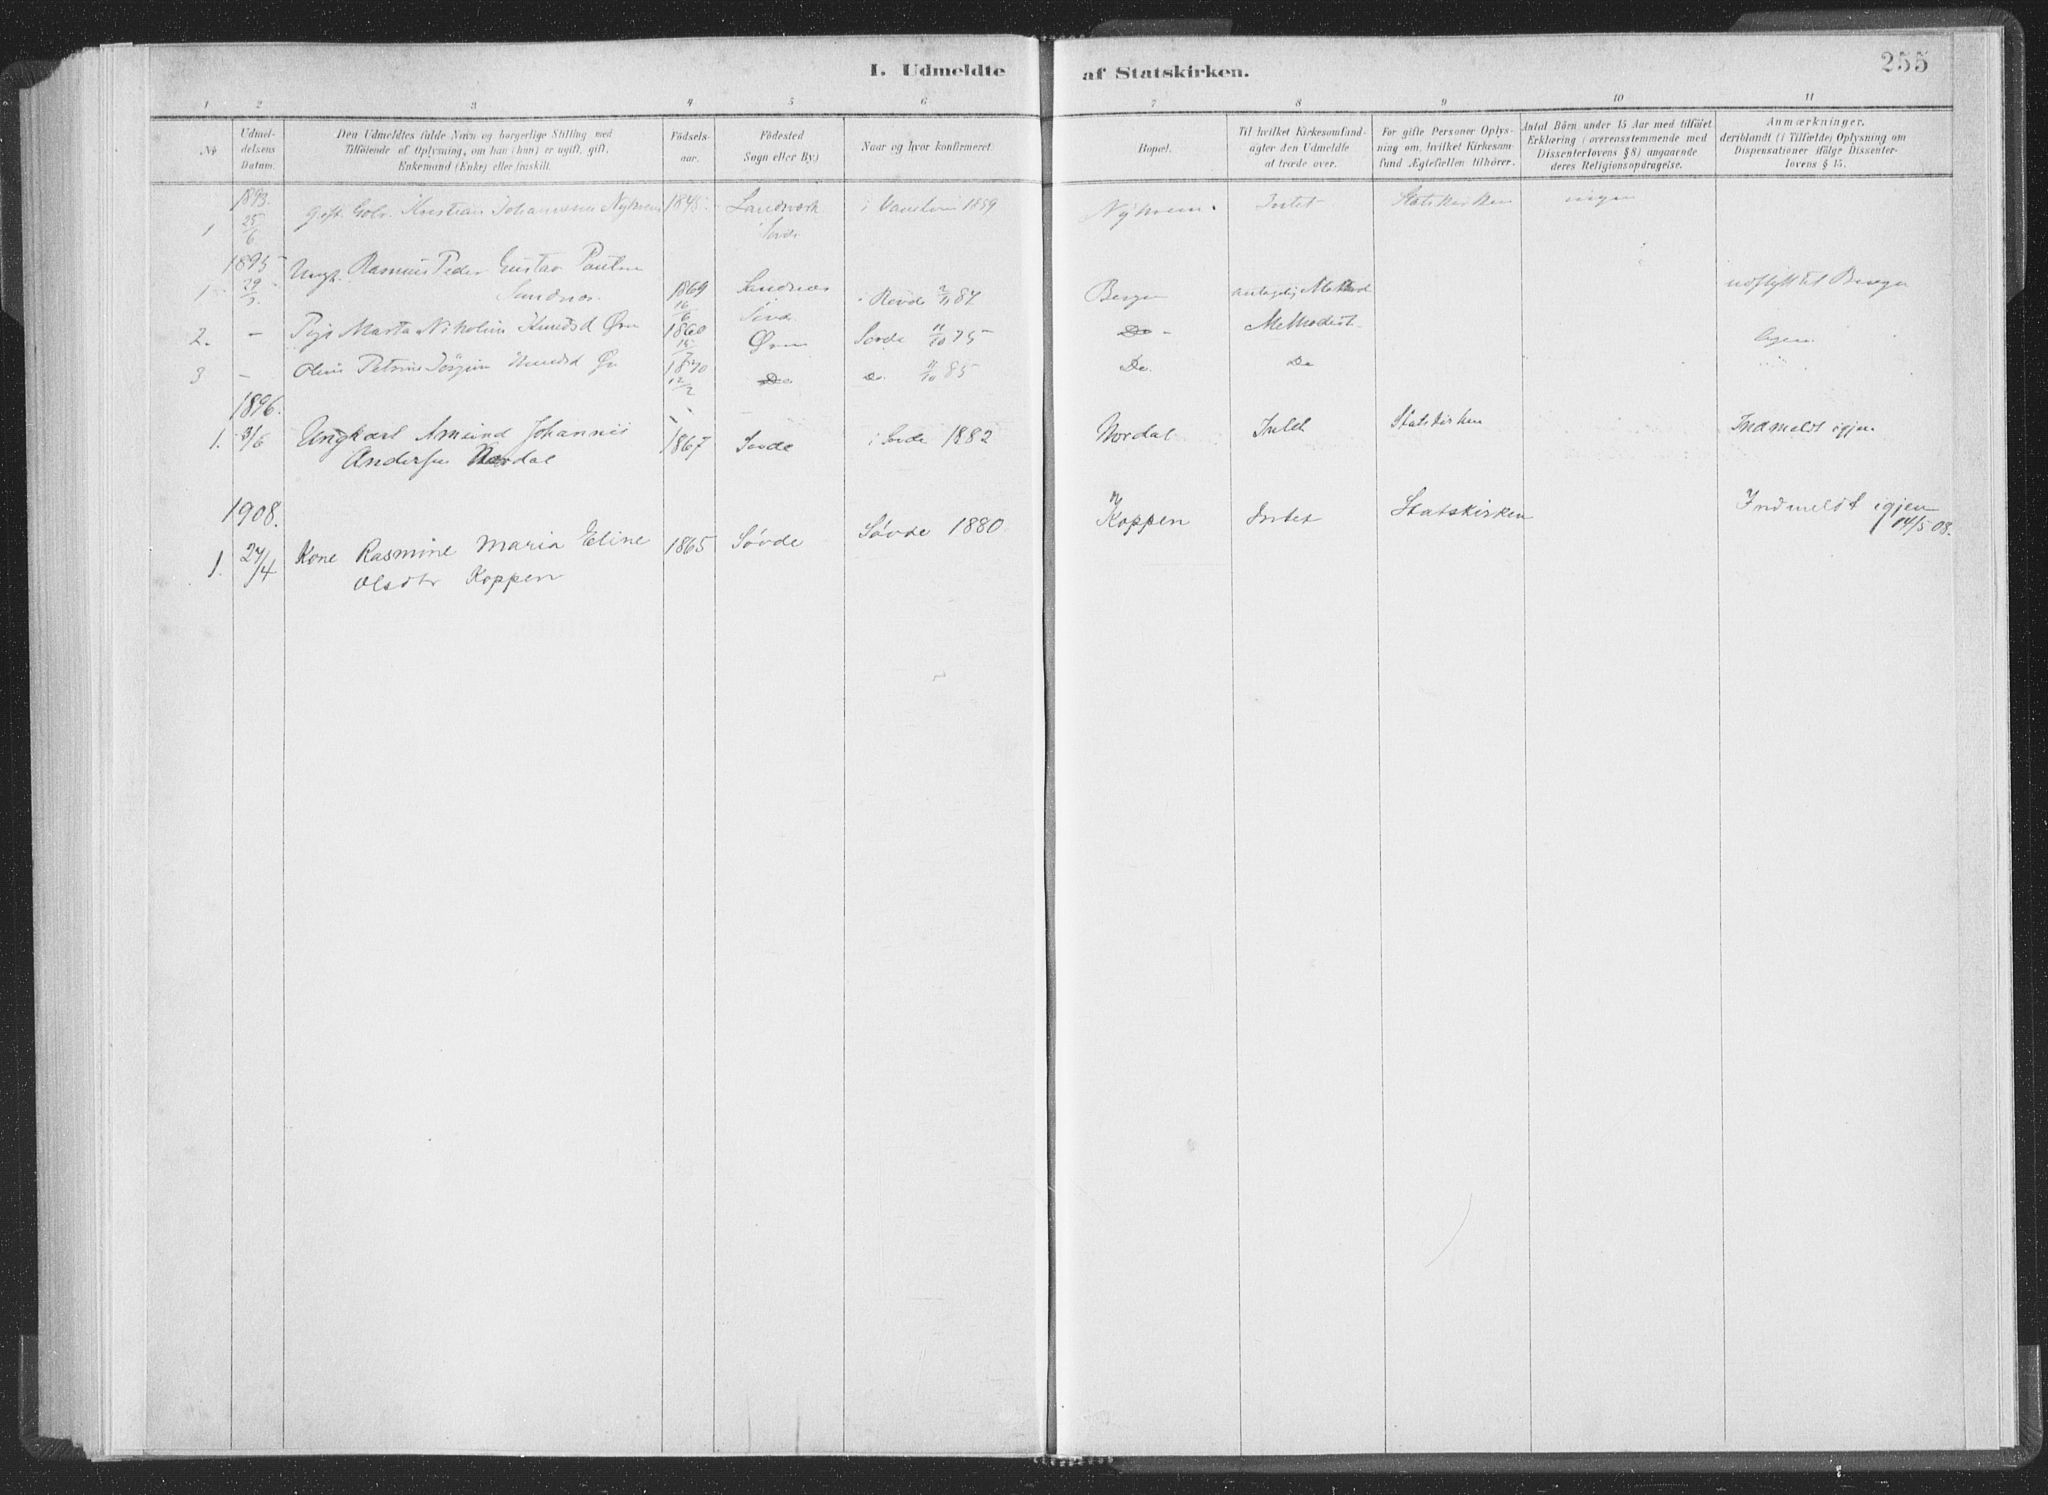 I. Udmeldte af Statskirken.
255
1 2 3 4 5 6 7 8 9 10 11
№
Udmeldelsens Datum.
Den Udmeldtes fulde Navn og borgerlige Stilling med
Tilföiende af Oplysning, om han (hun) er ugift, gift,
Enkemand (Enke) eller fraskilt.
Födselsaar.
Födested
Sogn eller By.)
Naar og hvor konfirmeret.
Bopæl.
Til hvilket Kirkesamfund
agter den Udmeldte
at træde over.
For gifte Personer Oplysning om, hvilket Kirkesamfund Ægtefællen tilhörer.
Antal Börn under 15 Aar med tilföiet
Erklæring (overensstemmende med
Dissenterlovens § 8) angaaende
deres Religionsopdragelse.
Anmærkninger,
deriblandt (i Tilfælde) Oplysning om
Dispensationer ifölge Dissenterlovens § 15.
1893.
1 25/6 Gift Kristian Johannesen 1845 i 1859 Intet Statskirken ingen
1895
1 29/ Ungk. Rasmus Peder Gustav
Sandnæs 1869 16/6 Sandnæs i 84 Bergen udflytt til Bergen
2. - Pige Marta Knudsd Ørn 1860 Ørn Sovde 11/10 75 Do - Methodist
3 - Petrine Knudsd 1870 12/2 Do Do 11/10 85 Do. Do
1896.
1. 3/6 Ungkarl Amund Johannes
Andersen Nordal 1867 Sovde i Sovde 1882 Nordal Intet Statskirken Indmeldt igjen
1908.
1. 27/4 Kone Rasmine Maria Eline
Olsdtr Koppen 1865 Søvde Søvde 1880. Koppen Intet Statskirken Indmeldt igjen
14/5 08.